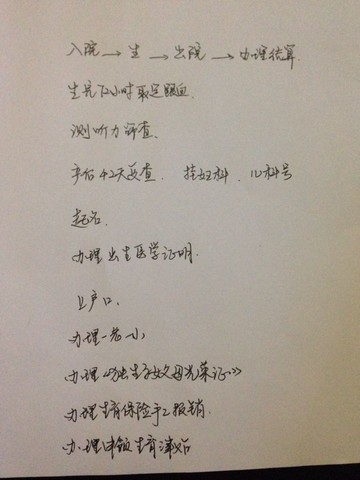 入院 → 生 → 出院 → 办理结算.
生完72小时采足跟血.
测听力筛查.
产后42天复查. 挂妇科. 儿科号
起名.
办理出生医学证明.
上户口.
办理一老一小
办理《独生子女父母光荣证》
办理生育保险手工报销.
办理申领生育津贴